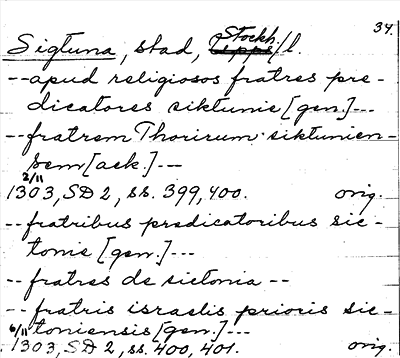 34.
Sigtuna, stad, Stockh. l.
--apud religiosos fratres pre-
dicatores siktunie [gen.]---
--fratrem Thorirum siktunien-
sem [ack.]---
2/11
1303, SD 2, ss. 399, 400. orig.
--fratribus predicatoribus sic-
tonie [gen.]---
--fratres de sictonia --
--fratris israelis prioris sic-
toniensis [gen.]---
6/11
1303, SD 2, ss. 400, 401. orig.